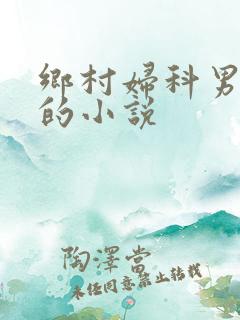 鄉村婦科男
的小說
陶澤當
未经同意禁止转载